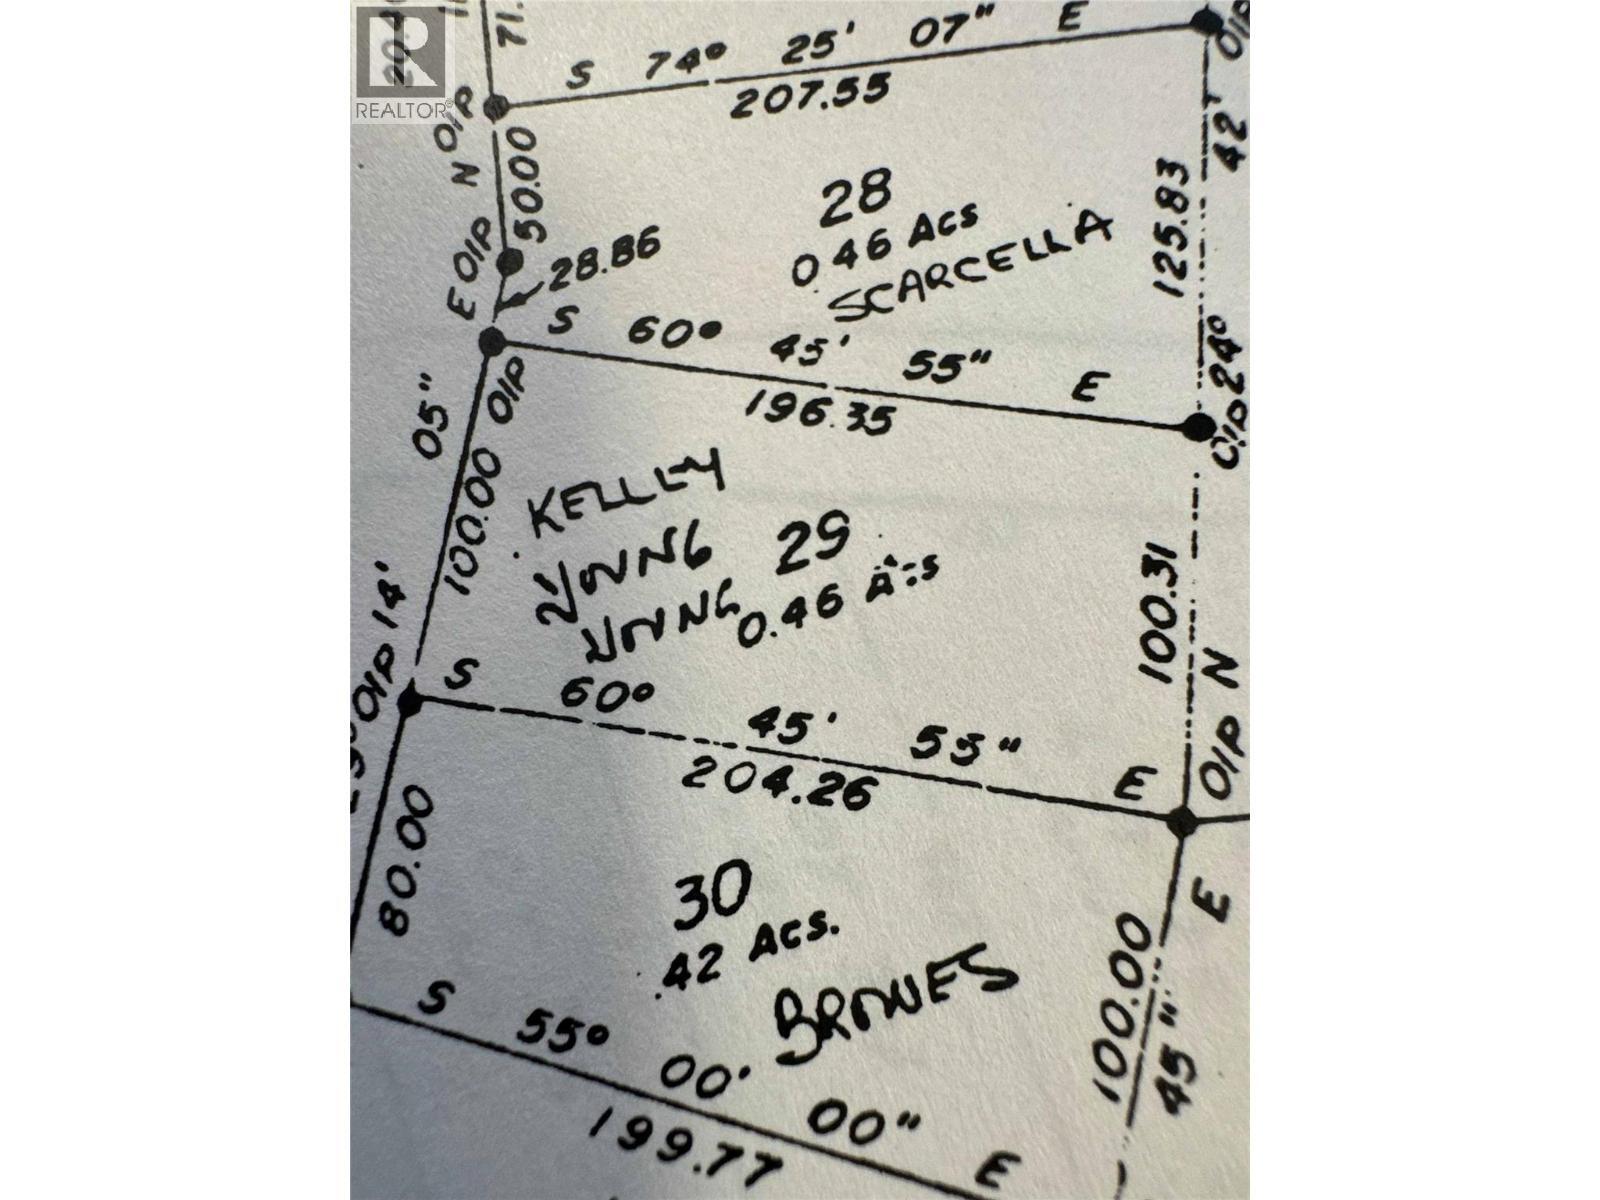 REALTOR®
71.
S 74° 25' 07" E
207.55
O/P
O/P
N
50.00
42'
E O/P
28.86
28
0.46 Acs
SCARCELLA
125.83
S 60° 45' 55" E
196.35
O/P 24°
05"
100.00 O/P
KELLEY
YOUNG
YOUNG
29
0.46 Acs
100.31
O/P 14'
S 60° 45' 55" E
204.26
O/P N
80.00
E
30
.42 Acs.
BROWES
100.00
45"
S 55° 00' 00" E
199.77